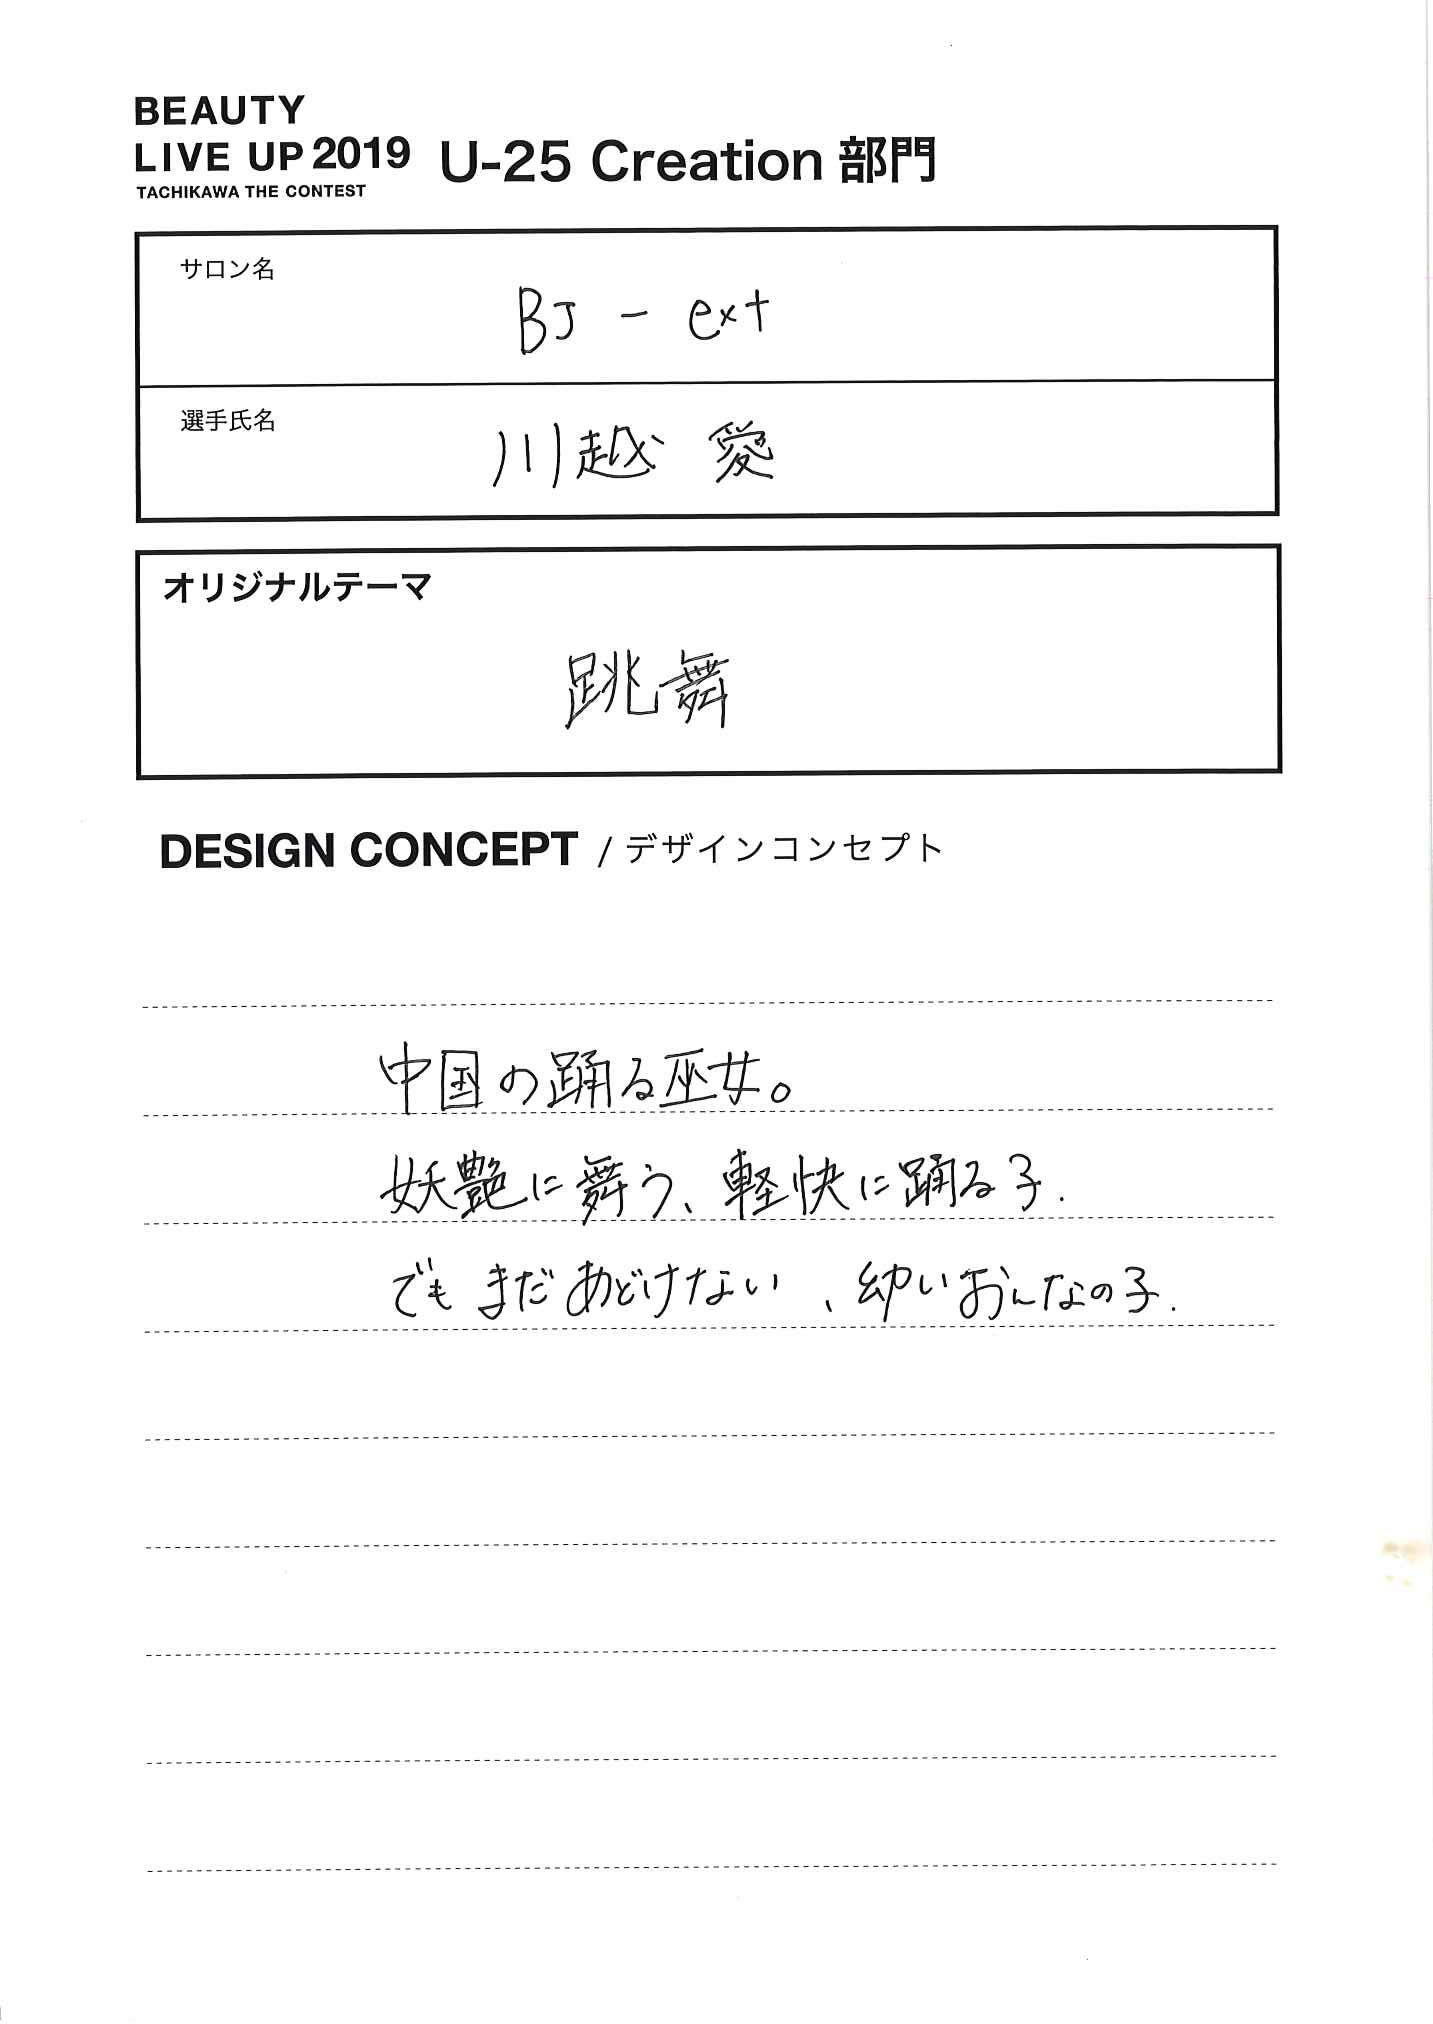 BEAUTY
LIVE UP 2019 U-25 Creation 部門
TACHIKAWA THE CONTEST
サロン名
BJ - ext
選手氏名
川越 愛
オリジナルテーマ
跳舞
DESIGN CONCEPT / デザインコンセプト
中国の踊る巫女。
妖艶に舞う、軽快に踊る子.
でも まだ あどけない、幼いおんなの子.